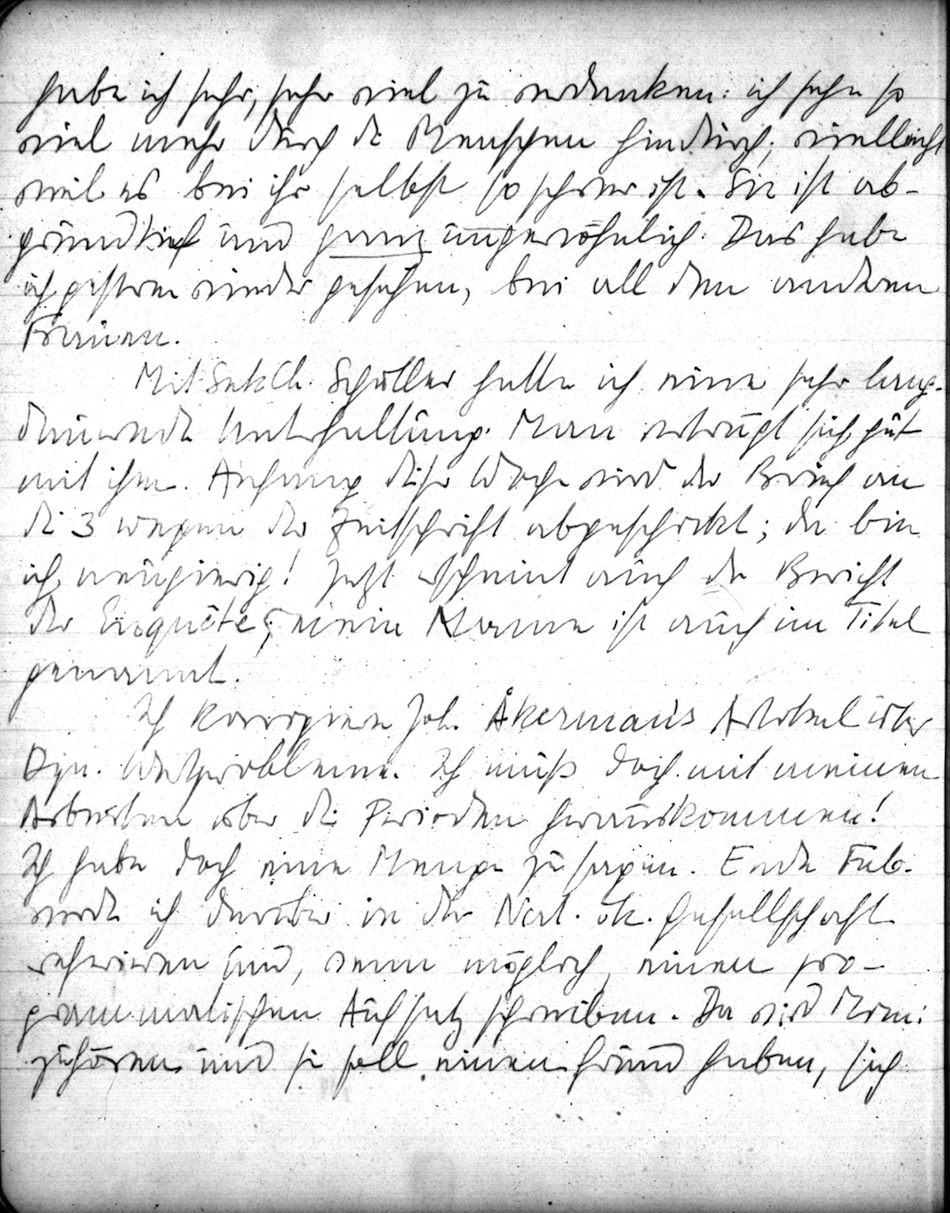 habe ich sehr, sehr viel zu verdanken: ich sehe so
viel mehr durch die Menschen hindurch; vielleicht
weil es bei ihr selbst so schwer ist. Sie ist ab-
grundtief und ganz ungewöhnlich. Das habe
ich gestern wieder gesehen, bei all den anderen
Frauen.
Mit Schüller hatte ich eine sehr lang-
dauernde Unterhaltung. Man verträgt sich gut
mit ihm. Anfang dieser Woche wird der Brief an
die 3 wegen der Zeitschrift abgeschickt; da bin
ich neugierig! Jetzt erscheint auch der Bericht
der Enquête; mein Name ist auch im Titel
genannt.
Ich korrigiere Joh. Åkermans Artikel über
Dyn. Wertprobleme. Ich muß doch mit meinen
Arbeiten über die Perioden herauskommen!
Ich habe doch eine Menge zu sagen. Ende Feb.
werde ich darüber in der Nat. ök. Gesellschaft
referieren und, wenn möglich, einen pro-
grammatischen Aufsatz schreiben. Da wird
zuhören und sie soll einen Grund haben, sich